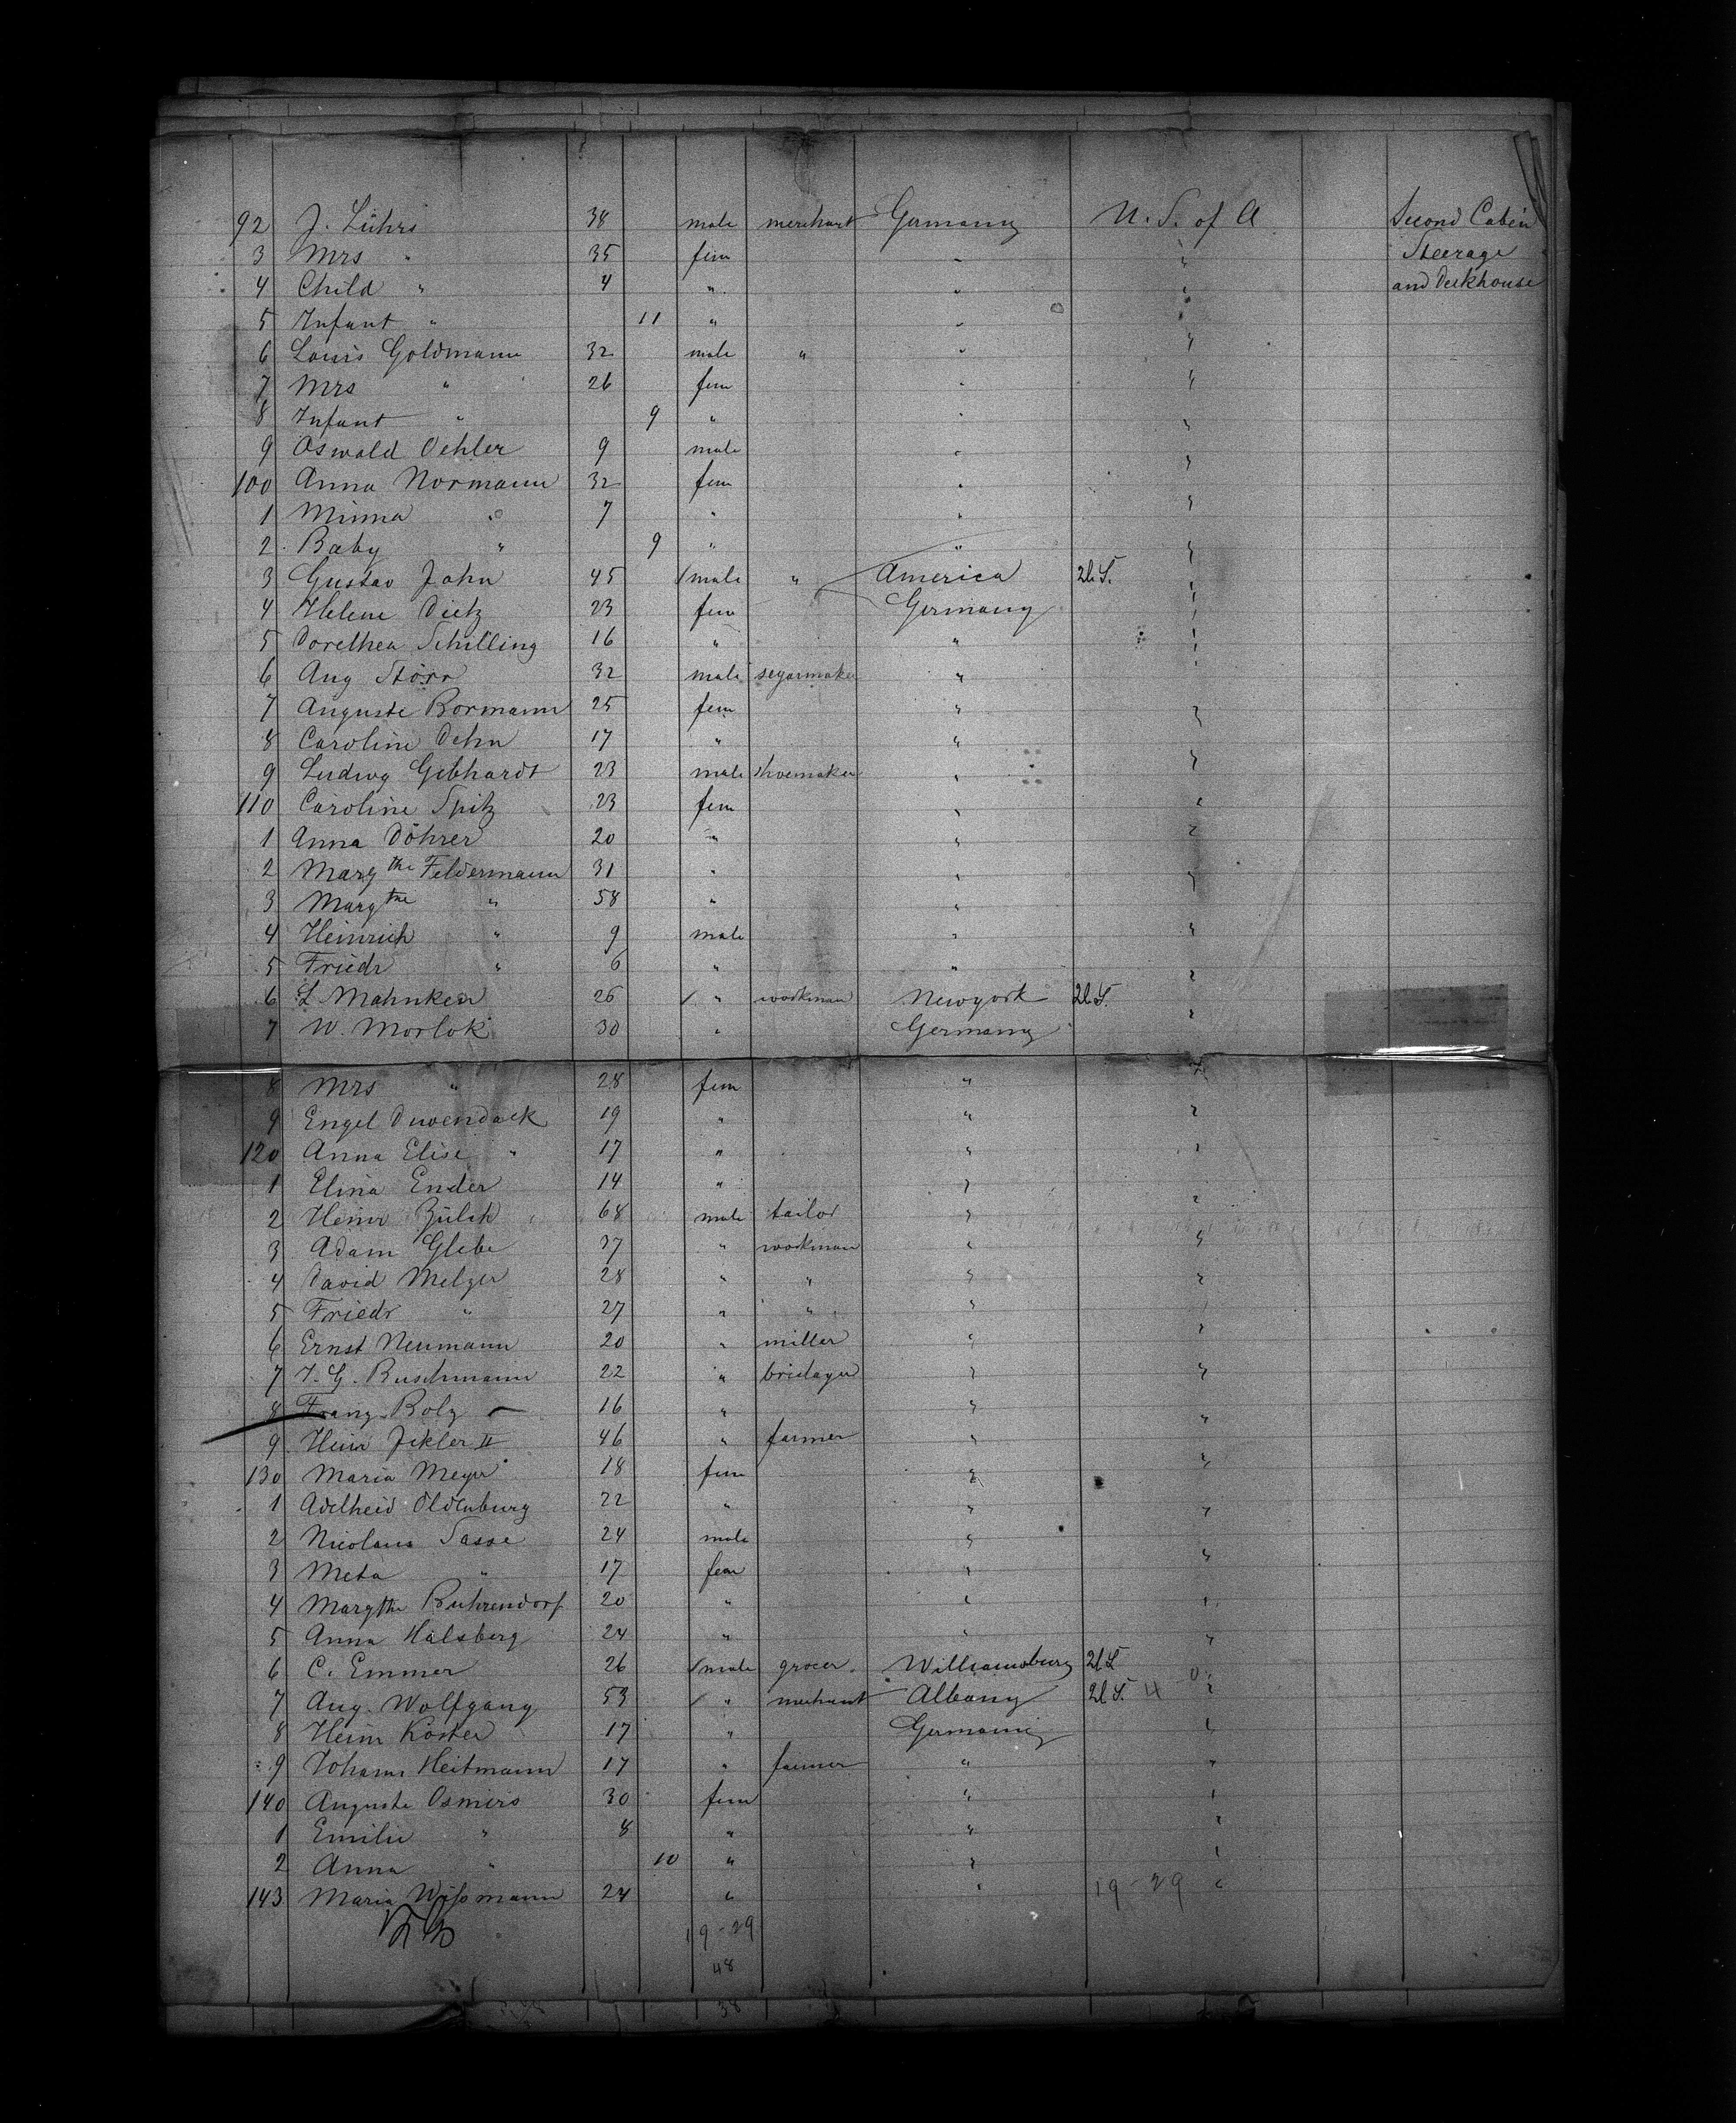 92 J. Lührs 38 male merchant Germany U. S. of A Second Cabin
3 Mrs " 35 fem " " Steerage
4 Child " 4 " " " and Deckhouse
5 Infant " 11 " " "
6 Louis Goldmann 32 male " " "
7 Mrs " 26 fem " "
8 Infant " 9 " " "
9 Oswald Oehler 9 male " "
100 Anna Normann 32 fem " "
1 Minna " 7 " " "
2 Baby " 9 " " "
3 Gustav John 45 male " America "
4 Helene Dietz 23 fem Germany "
5 Dorethea Schilling 16 " " "
6 Aug Störr 32 male segarmaker " "
7 Auguste Bormann 25 fem " "
8 Caroline Dehn 17 " "
9 Ludwg Gebhardt 23 male shoemaker " "
110 Caroline Spitz 23 fem " "
1 Anna Döhrer 20 " " "
2 Marg the Feldermann 31 " " "
3 Marg the " 58 " "
4 Heinrich " 9 male " "
5 Friedr " 6 " " "
6 L Mahnken 26 " workman Newyork "
7 W. Morlok 30 " Germany "
8 Mrs " 28 fem " "
9 Engel Duvendack 19 " " "
120 Anna Elise " 17 " " "
1 Elina Ender 14 " "
2 Heinr Zülch 68 male tailor " "
3 Adam Glebe 37 " workman " "
4 David Melzer 28 " " " "
5 Friedr " 27 " " "
6 Ernst Neumann 20 " miller " "
7 J. G. Buschmann 22 " brielayer " "
8 Franz Bolz 16 " " "
9 Heinr Jekler II 46 " farmer "
130 Maria Meyer 18 fem " "
1 Adelheid Oldenburg 22 " " "
2 Nicolaus Sasse 24 male "
3 Meta " 17 fem " "
4 Margthe Buhrendorf 20 " " "
5 Anna Halsberg 24 " " "
6 C. Emmer 26 male grocer. Williamsburg
7 Aug. Wolfgang 53 " merchant Albany "
8 Heinr Köster 17 " Germany "
9 Johann Heitmann 17 " farmer " "
140 Auguste Osmers 30 fem " "
1 Emilie " 8 " " "
2 Anna " 10 " " "
143 Maria Wißmann 24 " " 19-29 "
19-29
48
38